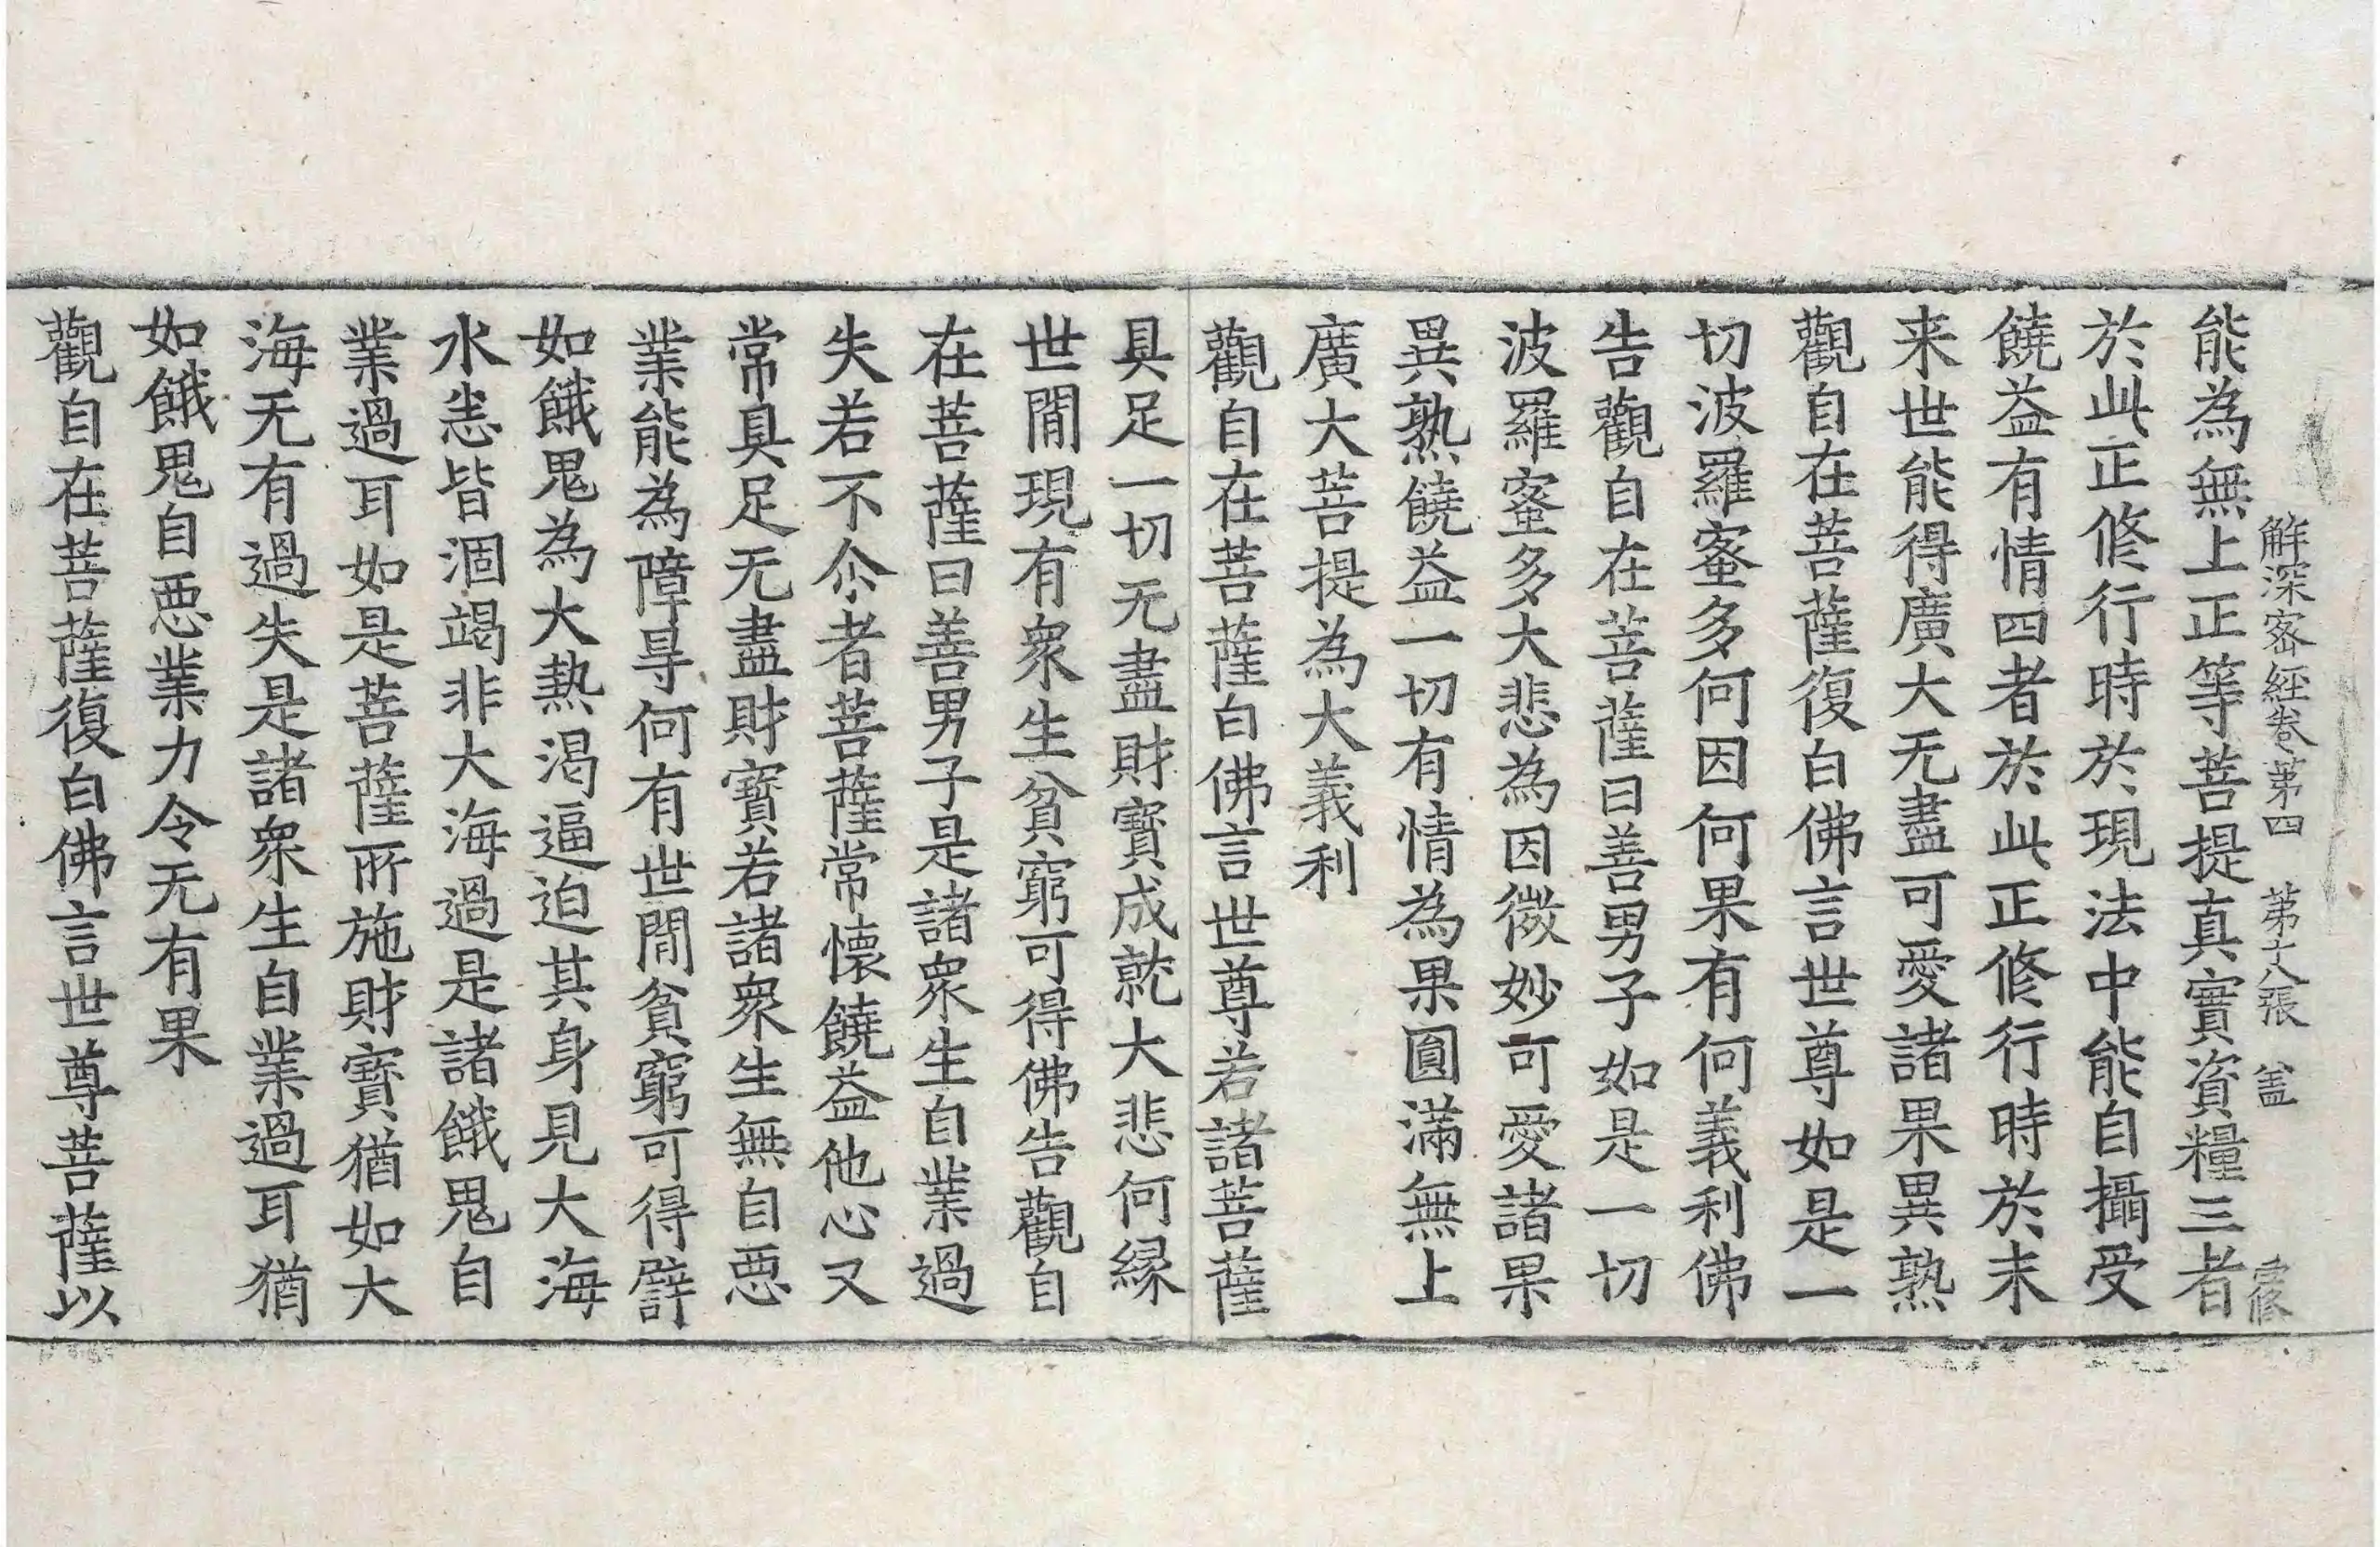 解深密經卷第四 第十八張 盖
能為無上正等菩提真實資糧三者
於此正修行時於現法中能自攝受
饒益有情四者於此正修行時於未
来世能得廣大无盡可愛諸果異熟
觀自在菩薩復白佛言世尊如是一
切波羅蜜多何因何果有何義利佛
告觀自在菩薩曰善男子如是一切
波羅蜜多大悲為因微妙可愛諸果
異熟饒益一切有情為果圓滿無上
廣大菩提為大義利
觀自在菩薩白佛言世尊若諸菩薩
具足一切无盡財寶成就大悲何緣
世間現有衆生貧窮可得佛告觀自
在菩薩曰善男子是諸衆生自業過
失若不尒者菩薩常懷饒益他心又
常具足无盡財寶若諸衆生無自惡
業能為障㝵何有世間貧窮可得譬
如餓鬼為大熱渴逼迫其身見大海
水悉皆涸竭非大海過是諸餓鬼自
業過耳如是菩薩所施財寶猶如大
海无有過失是諸衆生自業過耳猶
如餓鬼自惡業力令无有果
觀自在菩薩復白佛言世尊菩薩以